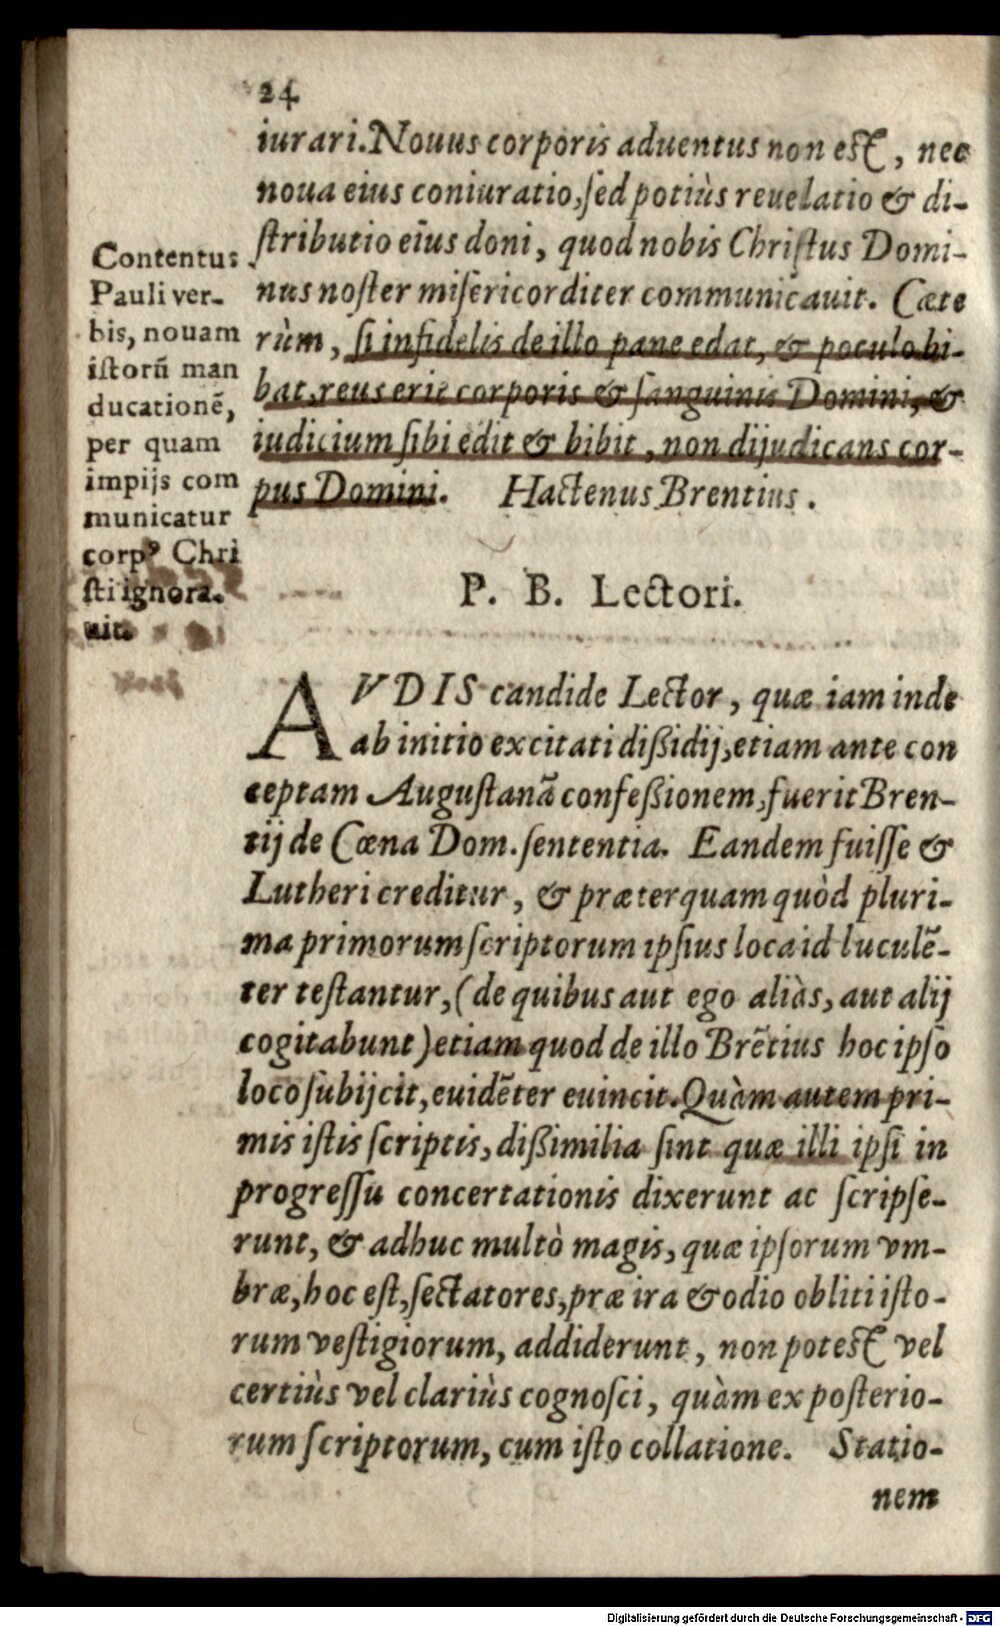 24
iurari. Nouus corporis aduentus non est, nec
noua eius coniuratio, sed potiùs reuelatio & di-
stributio eius doni, quod nobis Christus Domi-
nus noster misericorditer communicauit. Cæte
rùm, si infidelis de illo pane edat, & poculo bi-
bat, reus erit corporis & sanguinis Domini, &
iudicium sibi edit & bibit, non dijudicans cor-
pus Domini. Hactenus Brentius.
Contentus
Pauli ver-
bis, nouam
istorũ man
ducationẽ,
per quam
impijs com
municatur
corpꝰ Chri
sti ignora-
uit.
P. B. Lectori.
AVDIS candide Lector, quæ iam inde
ab initio excitati dißidij, etiam ante con
ceptam Augustanã confeßionem, fuerit Bren-
tij de Cœna Dom. sententia. Eandem fuisse &
Lutheri creditur, & præterquam quòd pluri-
ma primorum scriptorum ipsius loca id luculẽ-
ter testantur, (de quibus aut ego aliàs, aut alij
cogitabunt) etiam quod de illo Brẽtius hoc ipso
loco subijcit, euidẽter euincit. Quàm autem pri-
mis istis scriptis, dißimilia sint quæ illi ipsi in
progressu concertationis dixerunt ac scripse-
runt, & adhuc multò magis, quæ ipsorum vm-
bræ, hoc est, sectatores, præ ira & odio obliti isto-
rum vestigiorum, addiderunt, non potest vel
certiùs vel clariùs cognosci, quàm ex posterio-
rum scriptorum, cum isto collatione. Statio-
nem
Digitalisierung gefördert durch die Deutsche Forschungsgemeinschaft - DFG